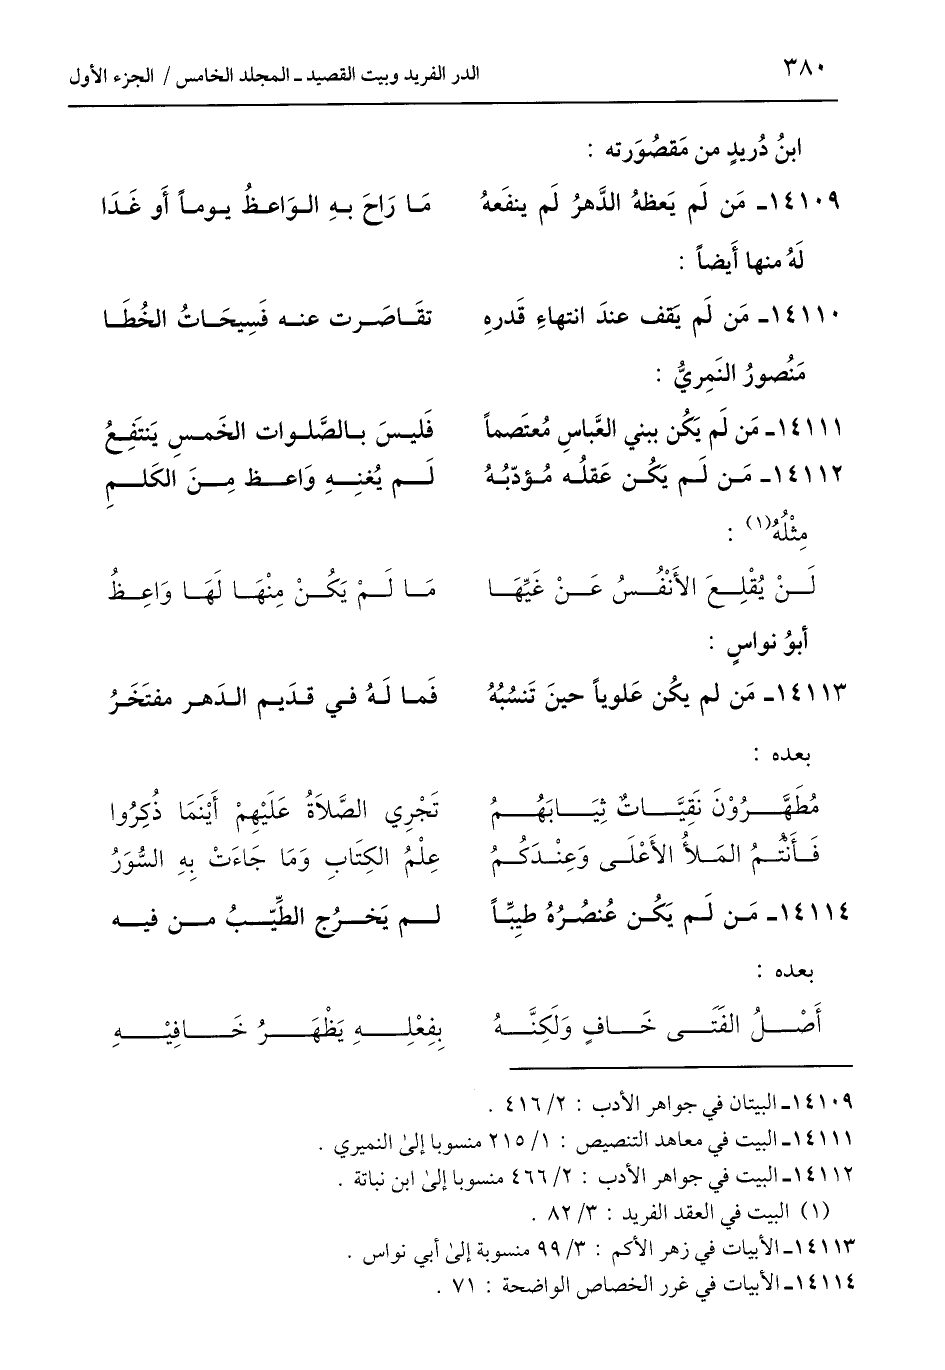 ٣٨٠ الدر الفريد وبيت القصيد ـ المجلد الخامس / الجزء الأول
ابنُ دُريدٍ من مَقصُوَرته :
١٤١٠٩ـ مَن لَم يَعظهُ الدَّهرُ لَم ينفَعهُ مَا رَاحَ بهِ الوَاعظُ يوماً أو غَدَا
لَهُ منها أَيضاً :
١٤١١٠ـ مَن لَم يَقف عندَ انتهاءِ قَدرهِ تقَاصَرت عنه فَسِيحَاتُ الخُطَا
مَنُصورُ النَمِريُّ :
١٤١١١ـ مَن لَم يَكُن ببني العَّباسِ مُعتَصماً فَليسَ بالصَّلوات الخَمسِ يَنتَفِعُ
١٤١١٢ـ مَن لَم يَكُن عَقلُه مُؤدّبُهُ لَم يُغنِهِ وَاعظ مِنَ الكَلمِ
مِثْلُهُ(١) :
لَنْ يُقْلِعَ الأَنْفُسُ عَنْ غَيِّهَا مَا لَمْ يَكُنْ مِنْهَا لَهَا وَاعِظُ
أبوُ نواسٍ :
١٤١١٣ـ مَن لم يكُن عَلوياً حينَ تَنسُبُهُ فَما لَهُ في قدَيم الدَهر مفتَخَرُ
بعده :
مُطَهَّرُوْنَ نَقِيَّاتٌ ثِيَابَهُمُ تَجْرِي الصَّلاَةُ عَلَيْهِمْ أَيْنَمَا ذُكِرُوا
فَأَنْتُمُ المَلأُ الأَعْلَى وَعِنْدَكُمُ عِلْمُ الكِتَابِ وَمَا جَاءَتْ بِهِ السُّوَرُ
١٤١١٤ـ مَن لَم يَكُن عُنصُرُهُ طيبِّاً لم يَخرُج الطِّيّبُ من فيه
بعده :
أَصْلُ الفَتَى خَافٍ وَلَكِنَّهُ بِفِعْلِهِ يَظْهَرُ خَافِيْهِ
١٤١٠٩ـ البيتان في جواهر الأدب : ٢/ ٤١٦ .
١٤١١١ـ البيت في معاهد التنصيص : ١/ ٢١٥ منسوبا إلىٰ النميري .
١٤١١٢ـ البيت في جواهر الأدب : ٢/ ٤٦٦ منسوبا إلىٰ ابن نباتة .
(١) البيت في العقد الفريد : ٣/ ٨٢ .
١٤١١٣ـ الأبيات في زهر الأكم : ٣/ ٩٩ منسوبة إلىٰ أبي نواس .
١٤١١٤ـ الأبيات في غرر الخصاص الواضحة : ٧١ .